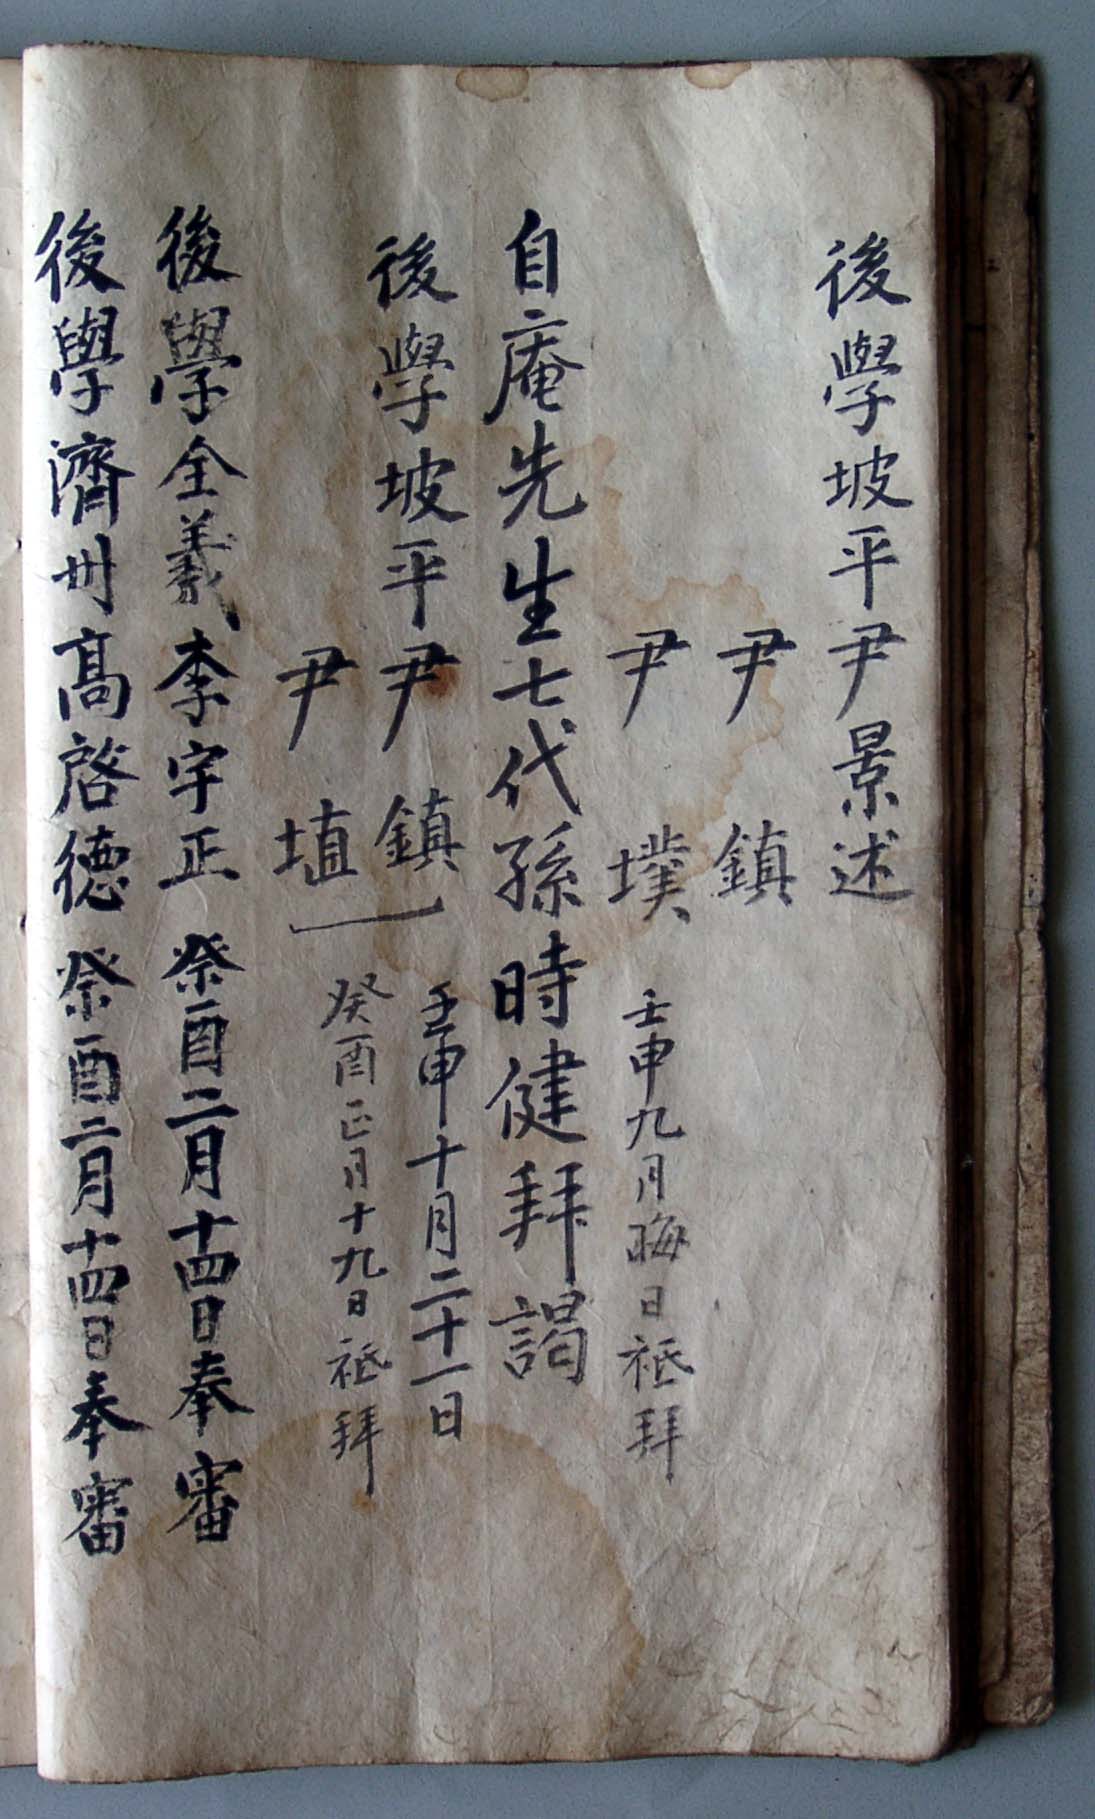 後學坡平尹景述
尹鎮
尹墣 壬申九月晦日祗拜
自庵先生七代孫時健拜謁
後學坡平尹鎮 壬申十月二十一日
尹埴 癸酉正月十九日祗拜
後學全義李宇正 癸酉二月十四日奉審
後學濟州高啓德 癸酉二月十四日奉審